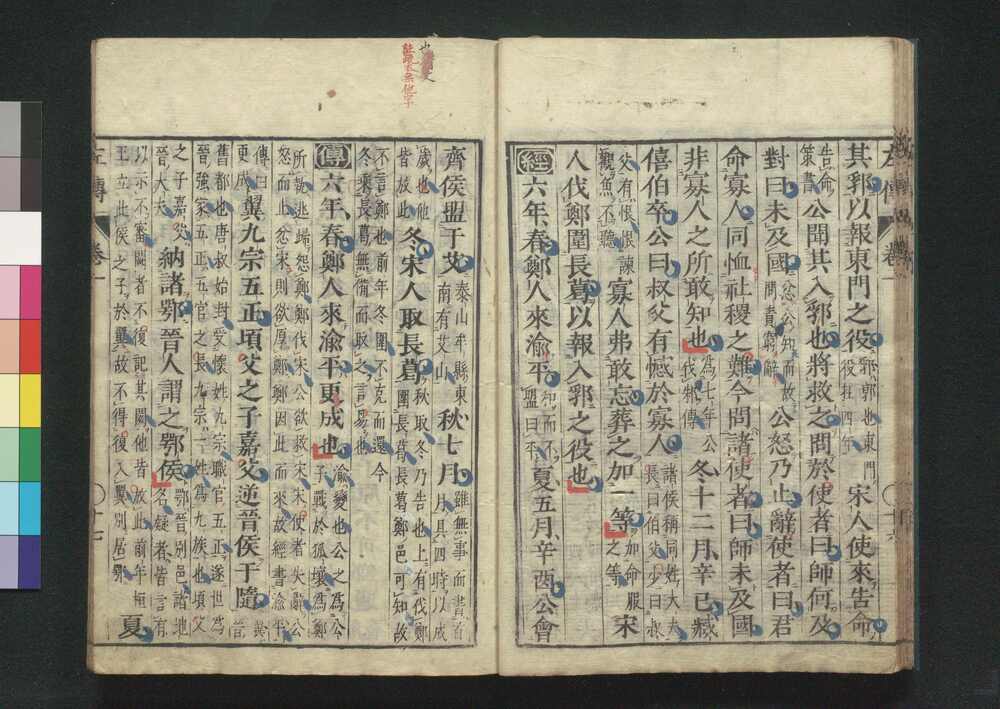 其郛以報東門之役郛郭也東門役在四年宋人使來告命
告命策書公聞其入郛也將救之問於使者曰師何及
對曰未及國忿公知而故問責窮辭公怒乃止辭使者曰君
命寡人同恤社稷之難今問諸使者曰師未及國
非寡人之所敢知也為七年公伐邾傳冬十二月辛巳臧
僖伯卒公曰叔父有憾於寡人諸侯稱同姓大夫長曰伯父少曰叔
父有恨恨諫觀魚不聽寡人弗敢忘葬之加一等加命服之等宋
人伐鄭圍長葛以報入郛之役也
經六年春鄭人來渝平和而不盟曰平夏五月辛酉公會
齊侯盟于艾泰山牟縣東南有艾山秋七月雖無事而書首月具四時以成
歲也他皆放此冬宋人取長葛秋取冬乃告也上有伐鄭圍長葛長葛鄭邑可知故
不言鄭也前年冬圍不克而還今冬乘長葛無備而取之言易也
傳六年春鄭人來渝平更成也渝變也公之為公子戰於狐壤為鄭
所執逃歸怨鄭鄭伐宋公欲救宋宋使者失辭公怒而止忿宋則欲厚鄭鄭因此而來故經書渝平
傳曰更成翼九宗五正頃父之子嘉父逆晉侯于隨翼晉
舊都也唐叔始封受懷姓九宗職官五正遂世為晉強家五正五官之長九宗一姓為九族也頃父
之子嘉父晉大夫納諸鄂晉人謂之鄂侯鄂晉別邑諸地名疑者皆言有
以示不審闕者不復記其闕他皆放此前年桓王立此侯之子於翼故不得復入翼別居鄂夏
左傳 卷一 十七